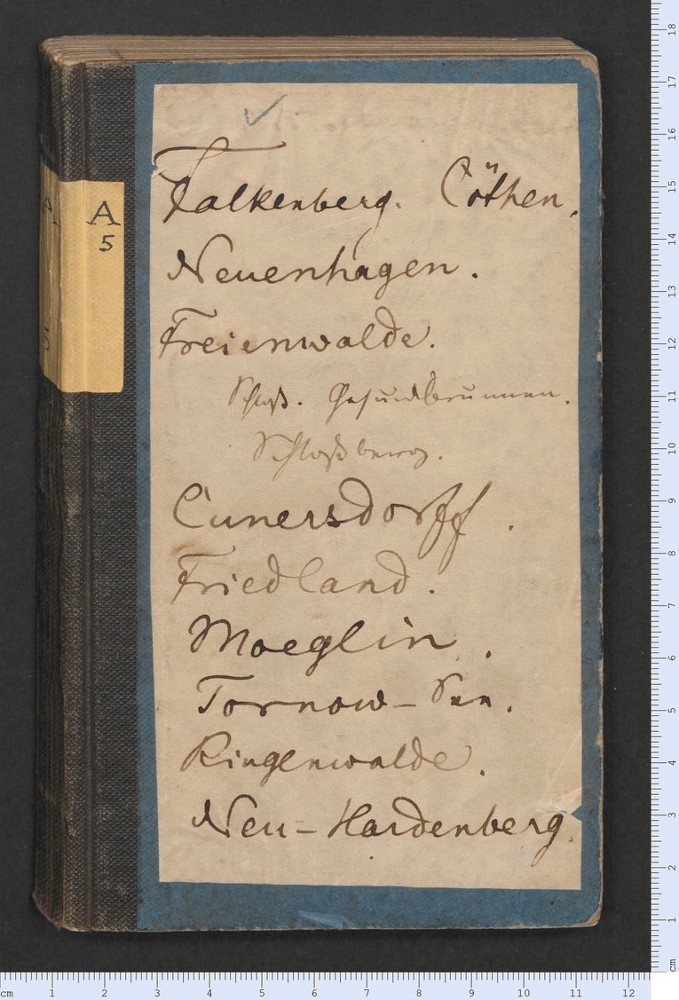 A
5
Falkenberg. Cöthen.
Neuenhagen.
Freienwalde.
Schloß. Gesundbrunnen.
Schloßberg.
Cunersdorff.
Friedland.
Moeglin.
Tornow-See.
Ringenwalde.
Neu-Hardenberg.
18
17
16
15
14
13
12
11
10
9
8
7
6
5
4
3
2
1
cm
cm 1 2 3 4 5 6 7 8 9 10 11 12